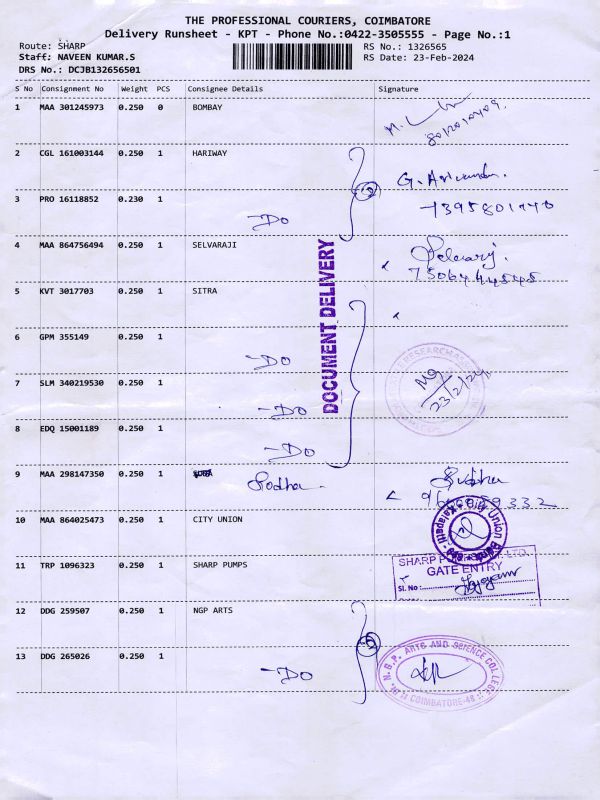 THE PROFESSIONAL COURIERS, COIMBATORE
Delivery Runsheet - KPT - Phone No.:0422-3505555 - Page No.:1
Route: SHARP
Staff: NAVEEN KUMAR.S
DRS No.: DCJB132656501
RS No.: 1326565
RS Date: 23-Feb-2024
S No Consignment No Weight PCS Consignee Details Signature
1 MAA 301245973 0.250 0 BOMBAY
2 CGL 161003144 0.250 1 HARIWAY
3 PRO 16118852 0.230 1 -DO
4 MAA 864756494 0.250 1 SELVARAJI
5 KVT 3017703 0.250 1 SITRA
6 GPM 355149 0.250 1 -DO
7 SLM 340219530 0.250 1 -DO 23/2/24
8 EDQ 15001189 0.250 1 -DO
9 MAA 298147350 0.250 1
10 MAA 864025473 0.250 1 CITY UNION
City Union Bank
11 TRP 1096323 0.250 1 SHARP PUMPS
SHARP LTD.
GATE ENTRY
Sl. No :
12 DDG 259507 0.250 1 NGP ARTS
13 DDG 265026 0.250 1 -DO
N.G.P. ARTS AND SCIENCE COLLEGE
COIMBATORE-48
DOCUMENT DELIVERY